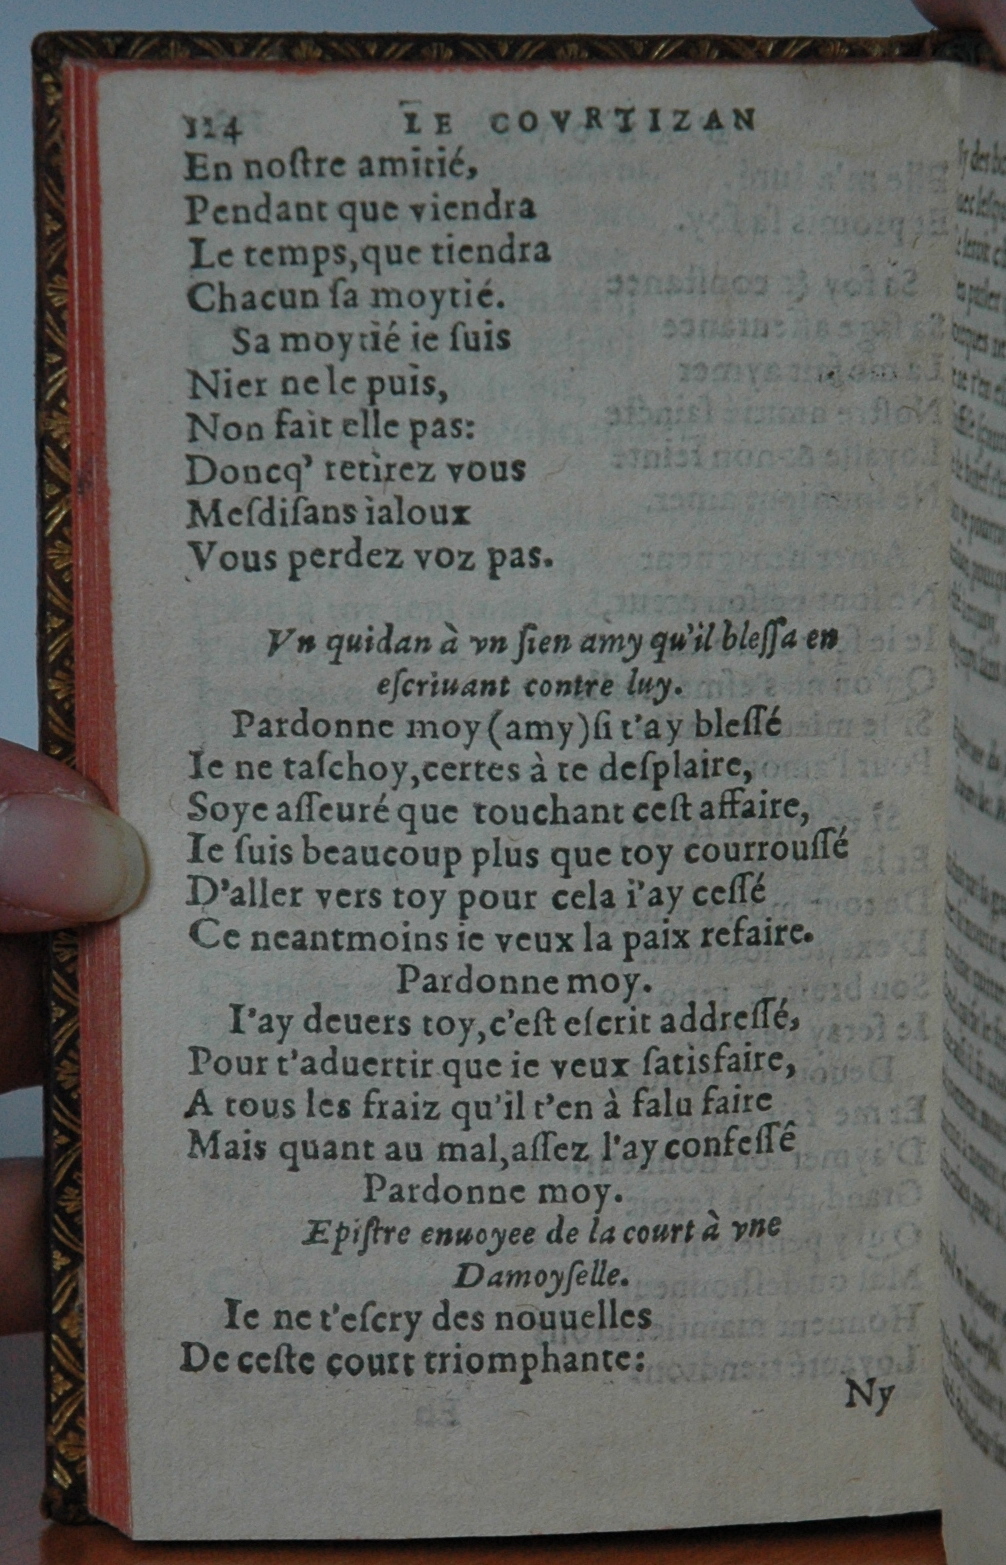 114 LE COVRTIZAN
En noſtre amitié,
Pendant que viendra
Le temps,que tiendra
Chacun ſa moytié.
Sa moytié ie ſuis
Nier ne le puis,
Non fait elle pas:
Doncq' retirez vous
Meſdiſans ialoux
Vous perdez voz pas.
Vn quidan à vn ſien amy qu'il bleſſa en
eſcriuant contre luy.
Pardonne moy (amy) ſi t'ay bleſſé
Ie ne taſchoy,certes à te deſplaire,
Soye aſſeuré que touchant ceſt affaire,
Ie ſuis beaucoup plus que toy courrouſſé
D'aller vers toy pour cela i'ay ceſſé
Ce neantmoins ie veux la paix refaire.
Pardonne moy.
I'ay deuers toy,c'eſt eſcrit addreſſé,
Pour t'aduertir que ie veux ſatisfaire,
A tous les fraiz qu'il t'en à falu faire
Mais quant au mal,aſſez l'ay confeſſê
Pardonne moy.
Epiſtre enuoyee de la court à vne
Damoyſelle.
Ie ne t'eſcry des nouuelles
De ceſte court triomphante:
Ny